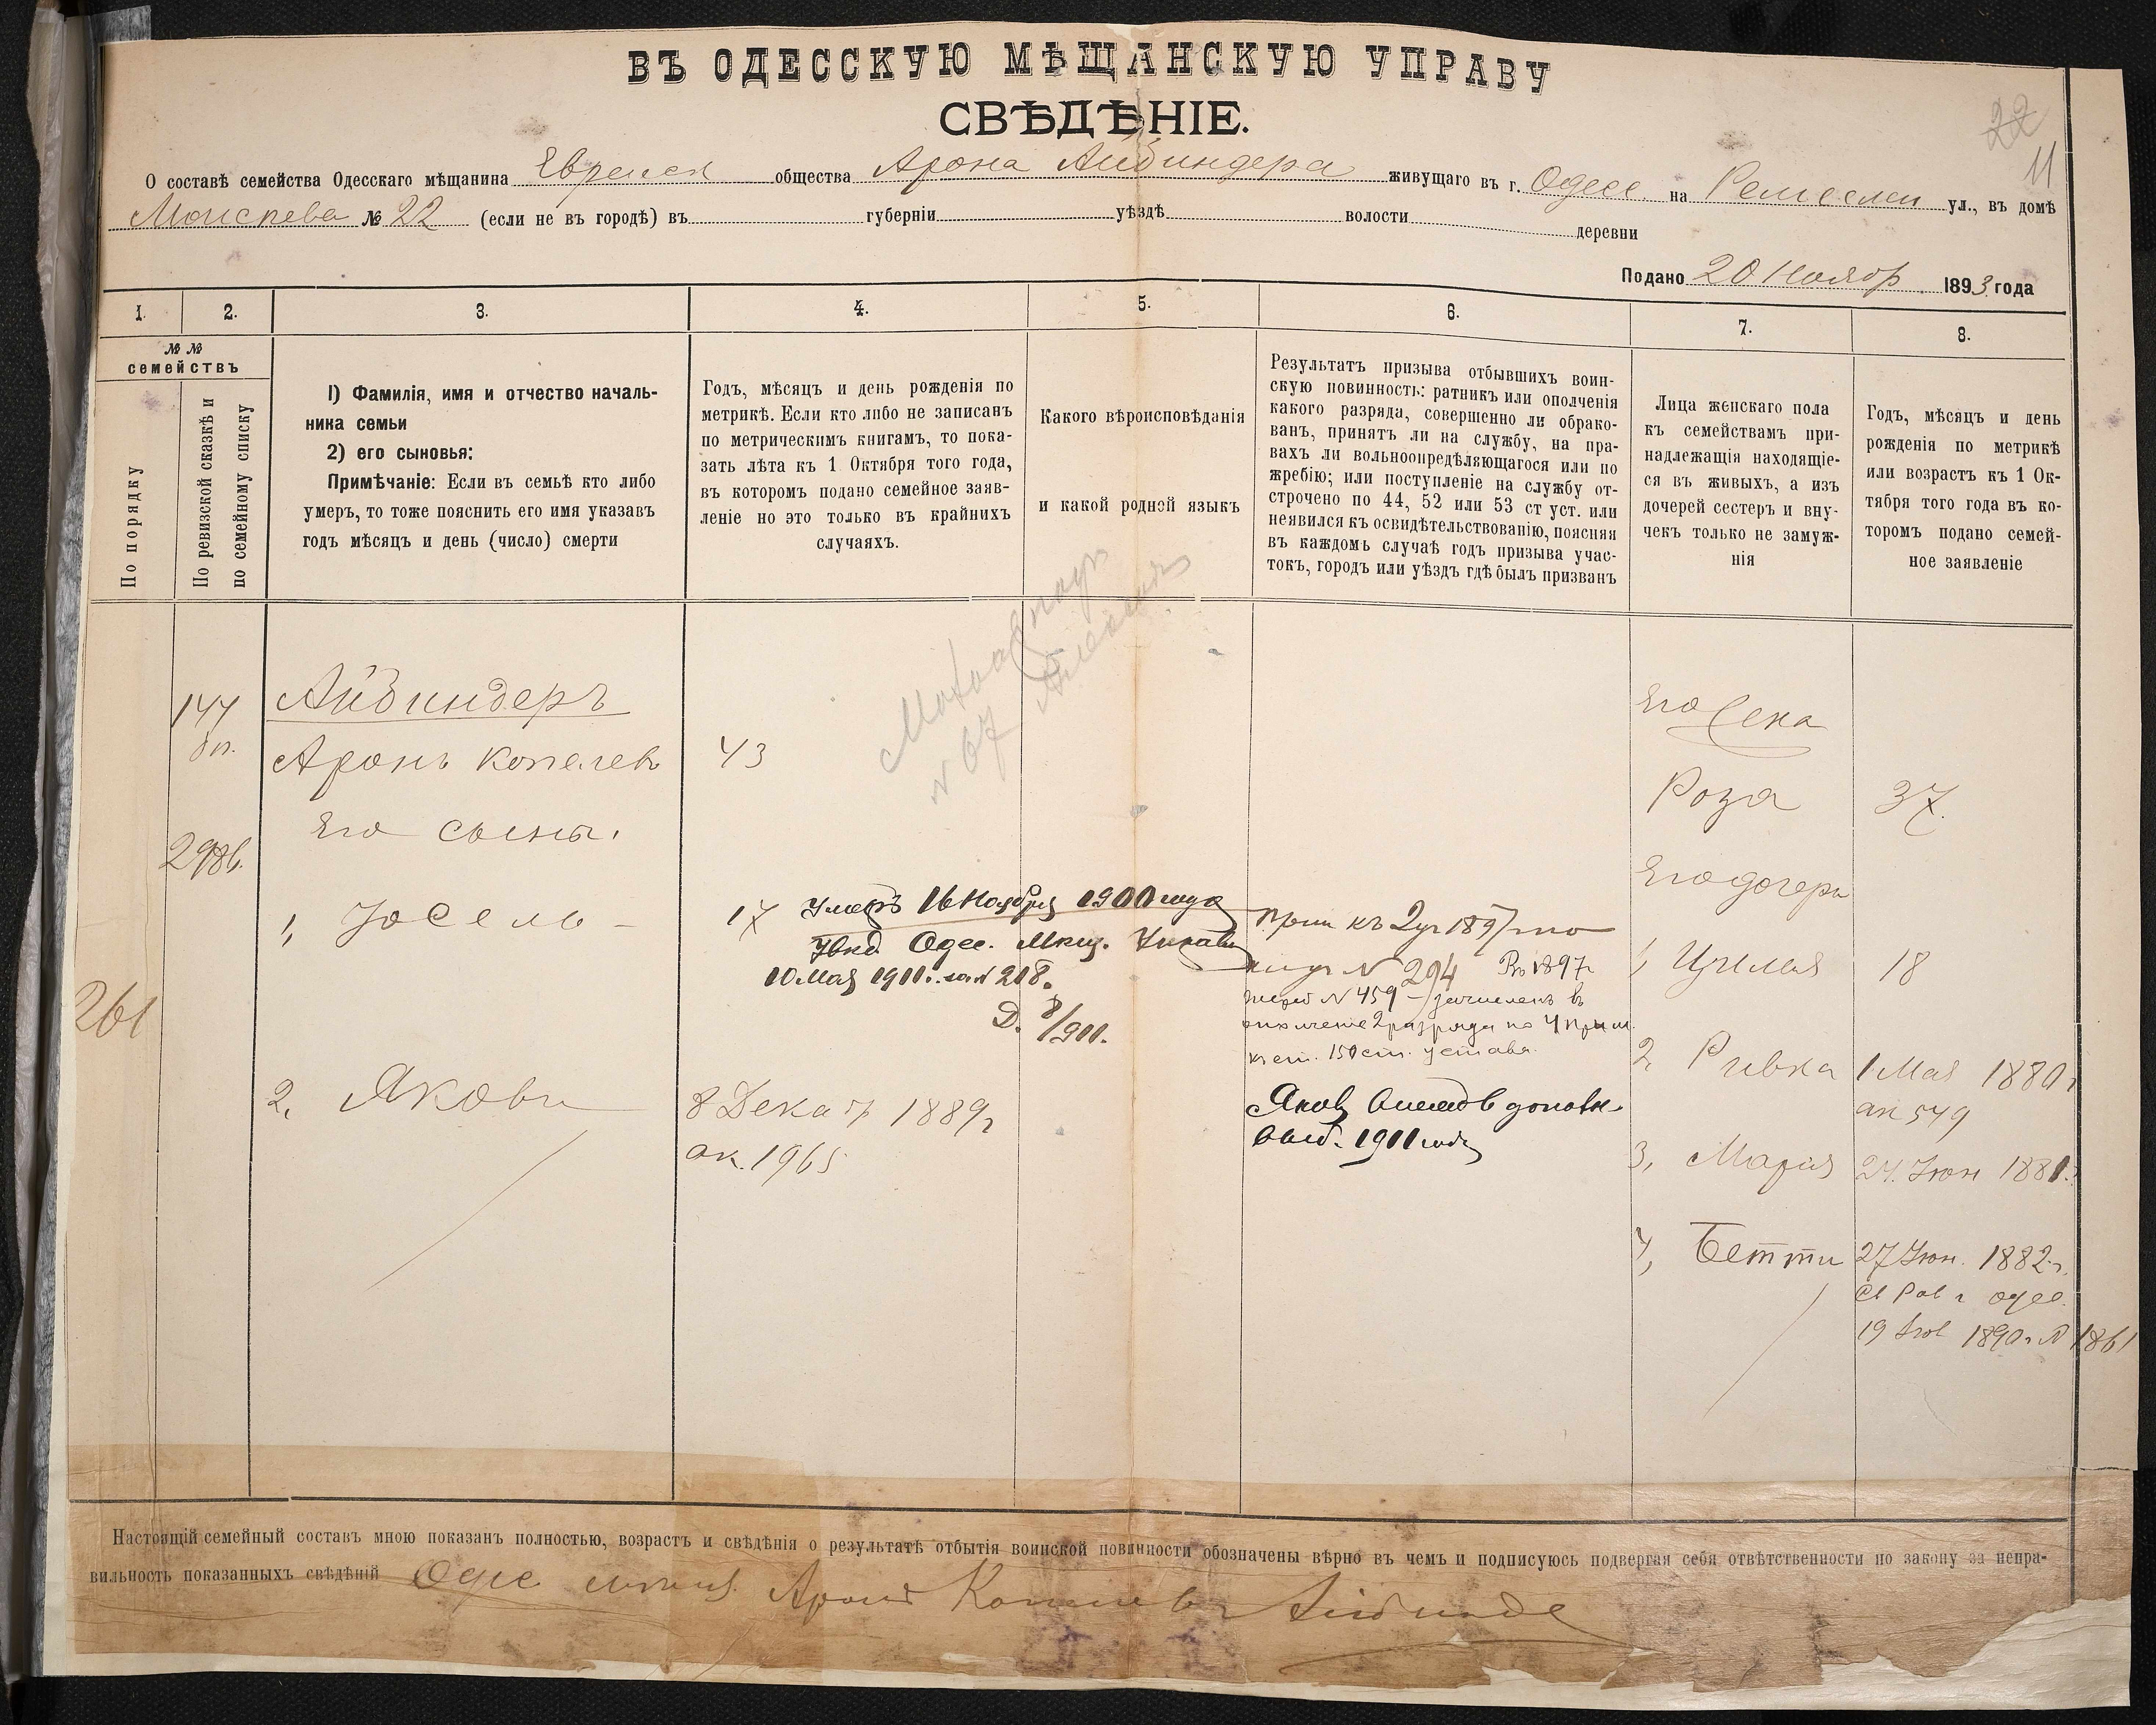 ВЪ ОДЕССКУЮ МѢЩАНСКУЮ УПРАВУ
СВѢДѢНІЕ.
22
11
О составѣ семейства Одесскаго мѣщанина Еврейск общества Арона Айбиндера живущаго въ г. Одесс. на Ремеслен ул., въ домѣ
№ 22 (если не въ городѣ) въ губерніи уѣздѣ волости деревни
Подано 20 Ноябр 1893 года
1. 2. 3. 4. 5. 6. 7. 8.
№ №
семействъ
По порядку
По ревизской сказкѣ и
по семейному списку
1) Фамилія, имя и отчество началь-
ника семьи
2) его сыновья:
Примѣчаніе: Если въ семьѣ кто либо
умеръ, то тоже пояснить его имя указавъ
годъ мѣсяцъ и день (число) смерти
Годъ, мѣсяцъ и день рожденія по
метрикѣ. Если кто либо не записанъ
по метрическимъ книгамъ, то пока-
зать лѣта къ 1 Октября того года,
въ которомъ подано семейное заяв-
леніе но это только въ крайнихъ
случаяхъ.
Какого вѣроисповѣданія
и какой родной языкъ
Результатъ призыва отбывшихъ воин-
скую повинность: ратникъ или ополченія
какого разряда, совершенно ли обрако-
ванъ, принятъ ли на службу, на пра-
вахъ ли вольноопредѣляющагося или по
жребію; или поступленіе на службу от-
строчено по 44, 52 или 53 ст уст. или
неявился къ освидѣтельствованію, поясняя
въ каждомъ случаѣ годъ призыва учас-
токъ, городъ или уѣздъ гдѣ былъ призванъ
Лица женскаго пола
къ семействамъ при-
надлежащія находящіе-
ся въ живыхъ, а изъ
дочерей сестеръ и вну-
чекъ только не замуж-
нія
Годъ, мѣсяцъ и день
рожденія по метрикѣ
или возрастъ къ 1 Ок-
тября того года въ ко-
торомъ подано семей-
ное заявленіе
N 67
261
147
298б.
Айбиндеръ
Аронъ Копелев 43
Его сыны.
1, Іосель – 17
Умеръ 16 Ноября 1900 года
Увѣд. Одес. Мѣщ. Управы
10 Мая 1911 г. за N 218.
Д. 8/911.
Прип къ 2 уч 1897 г по
N 294 Въ 1897 г
жереб N 459 – зачисленъ въ
ополченіе 2 разряда по 4 прим.
къ ст. 150 ст. устава.
2, Яковъ 8 Декабр 1889 г
ак. 1965
Яковъ
1911 года
Его Жена
Роза 37.
Его дочери
1, Циля 18
2, Ривка 1 Мая 1880 г
ак 549
3, Марія 24 Іюн 1881 г.
4, Бетти 27 Іюн. 1882 г.
св Рав г Одес.
19 1890 г N 1861
Настоящій семейный составъ мною показанъ полностью, возрастъ и свѣдѣнія о результатѣ отбытія воинской повинности обозначены вѣрно въ чемъ и подписуюсь подвергая себя отвѣтственности по закону за непра-
вильность показанныхъ свѣдѣній Одес Аронъ Копелевъ Айбинде